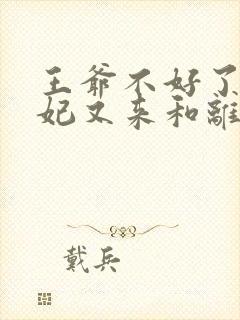 王爷不好了
妃又来和離
戴兵